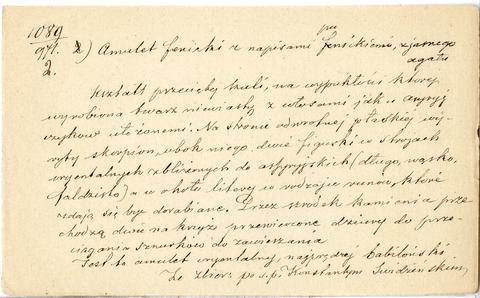 1089
971.
2.
2) Amulet fenicki z napisami fenickiemi, z jasnego
agatu
Kształt przeciętej kuli, na wypukłości której
wyrobiona twarz niewiasty z włosami jak u assyryj
czyków ułożonemi. Na stronie odwrotnej płaskiej wy-
ryty skorpion, obok niego dwie figurki w strojach
oryentalnych zbliżonych do assyryjskich (długo, wązko,
fałdzisto) a w około litery w rodzaju runów, które
zdają się być dorabiane. Przez środek kamienia prze
chodzą dwie na krzyż przewiercone dziury do prze-
ciągania sznurków do zawieszania
Jest to amulet oryentalny, najprędzej babiloński
Ze zbior. po ś.p. Konstantym Świdzińskim